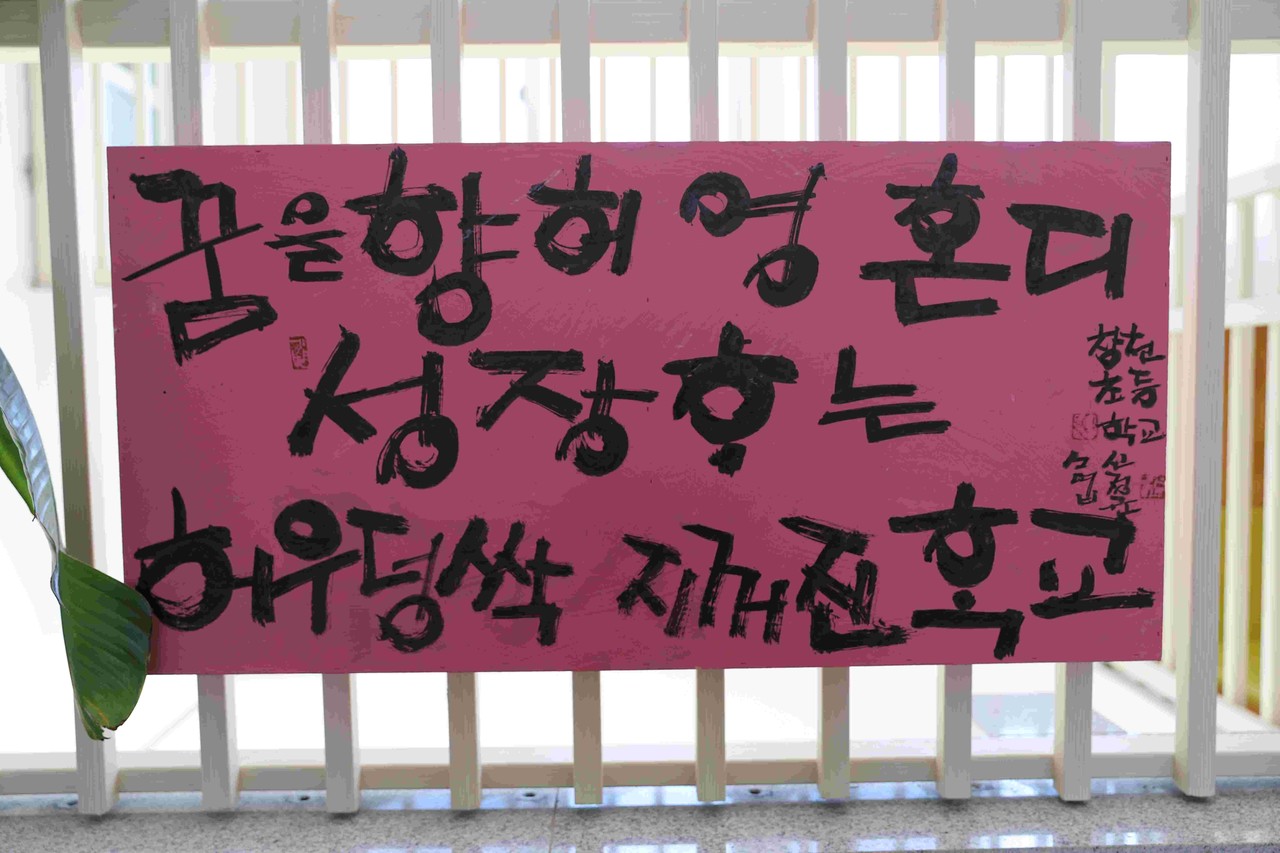 꿈을 향허영 혼디
성장ᄒᆞ는
허우덩싹 지꺼진 ᄒᆞᆨ교
창천
초등
학교